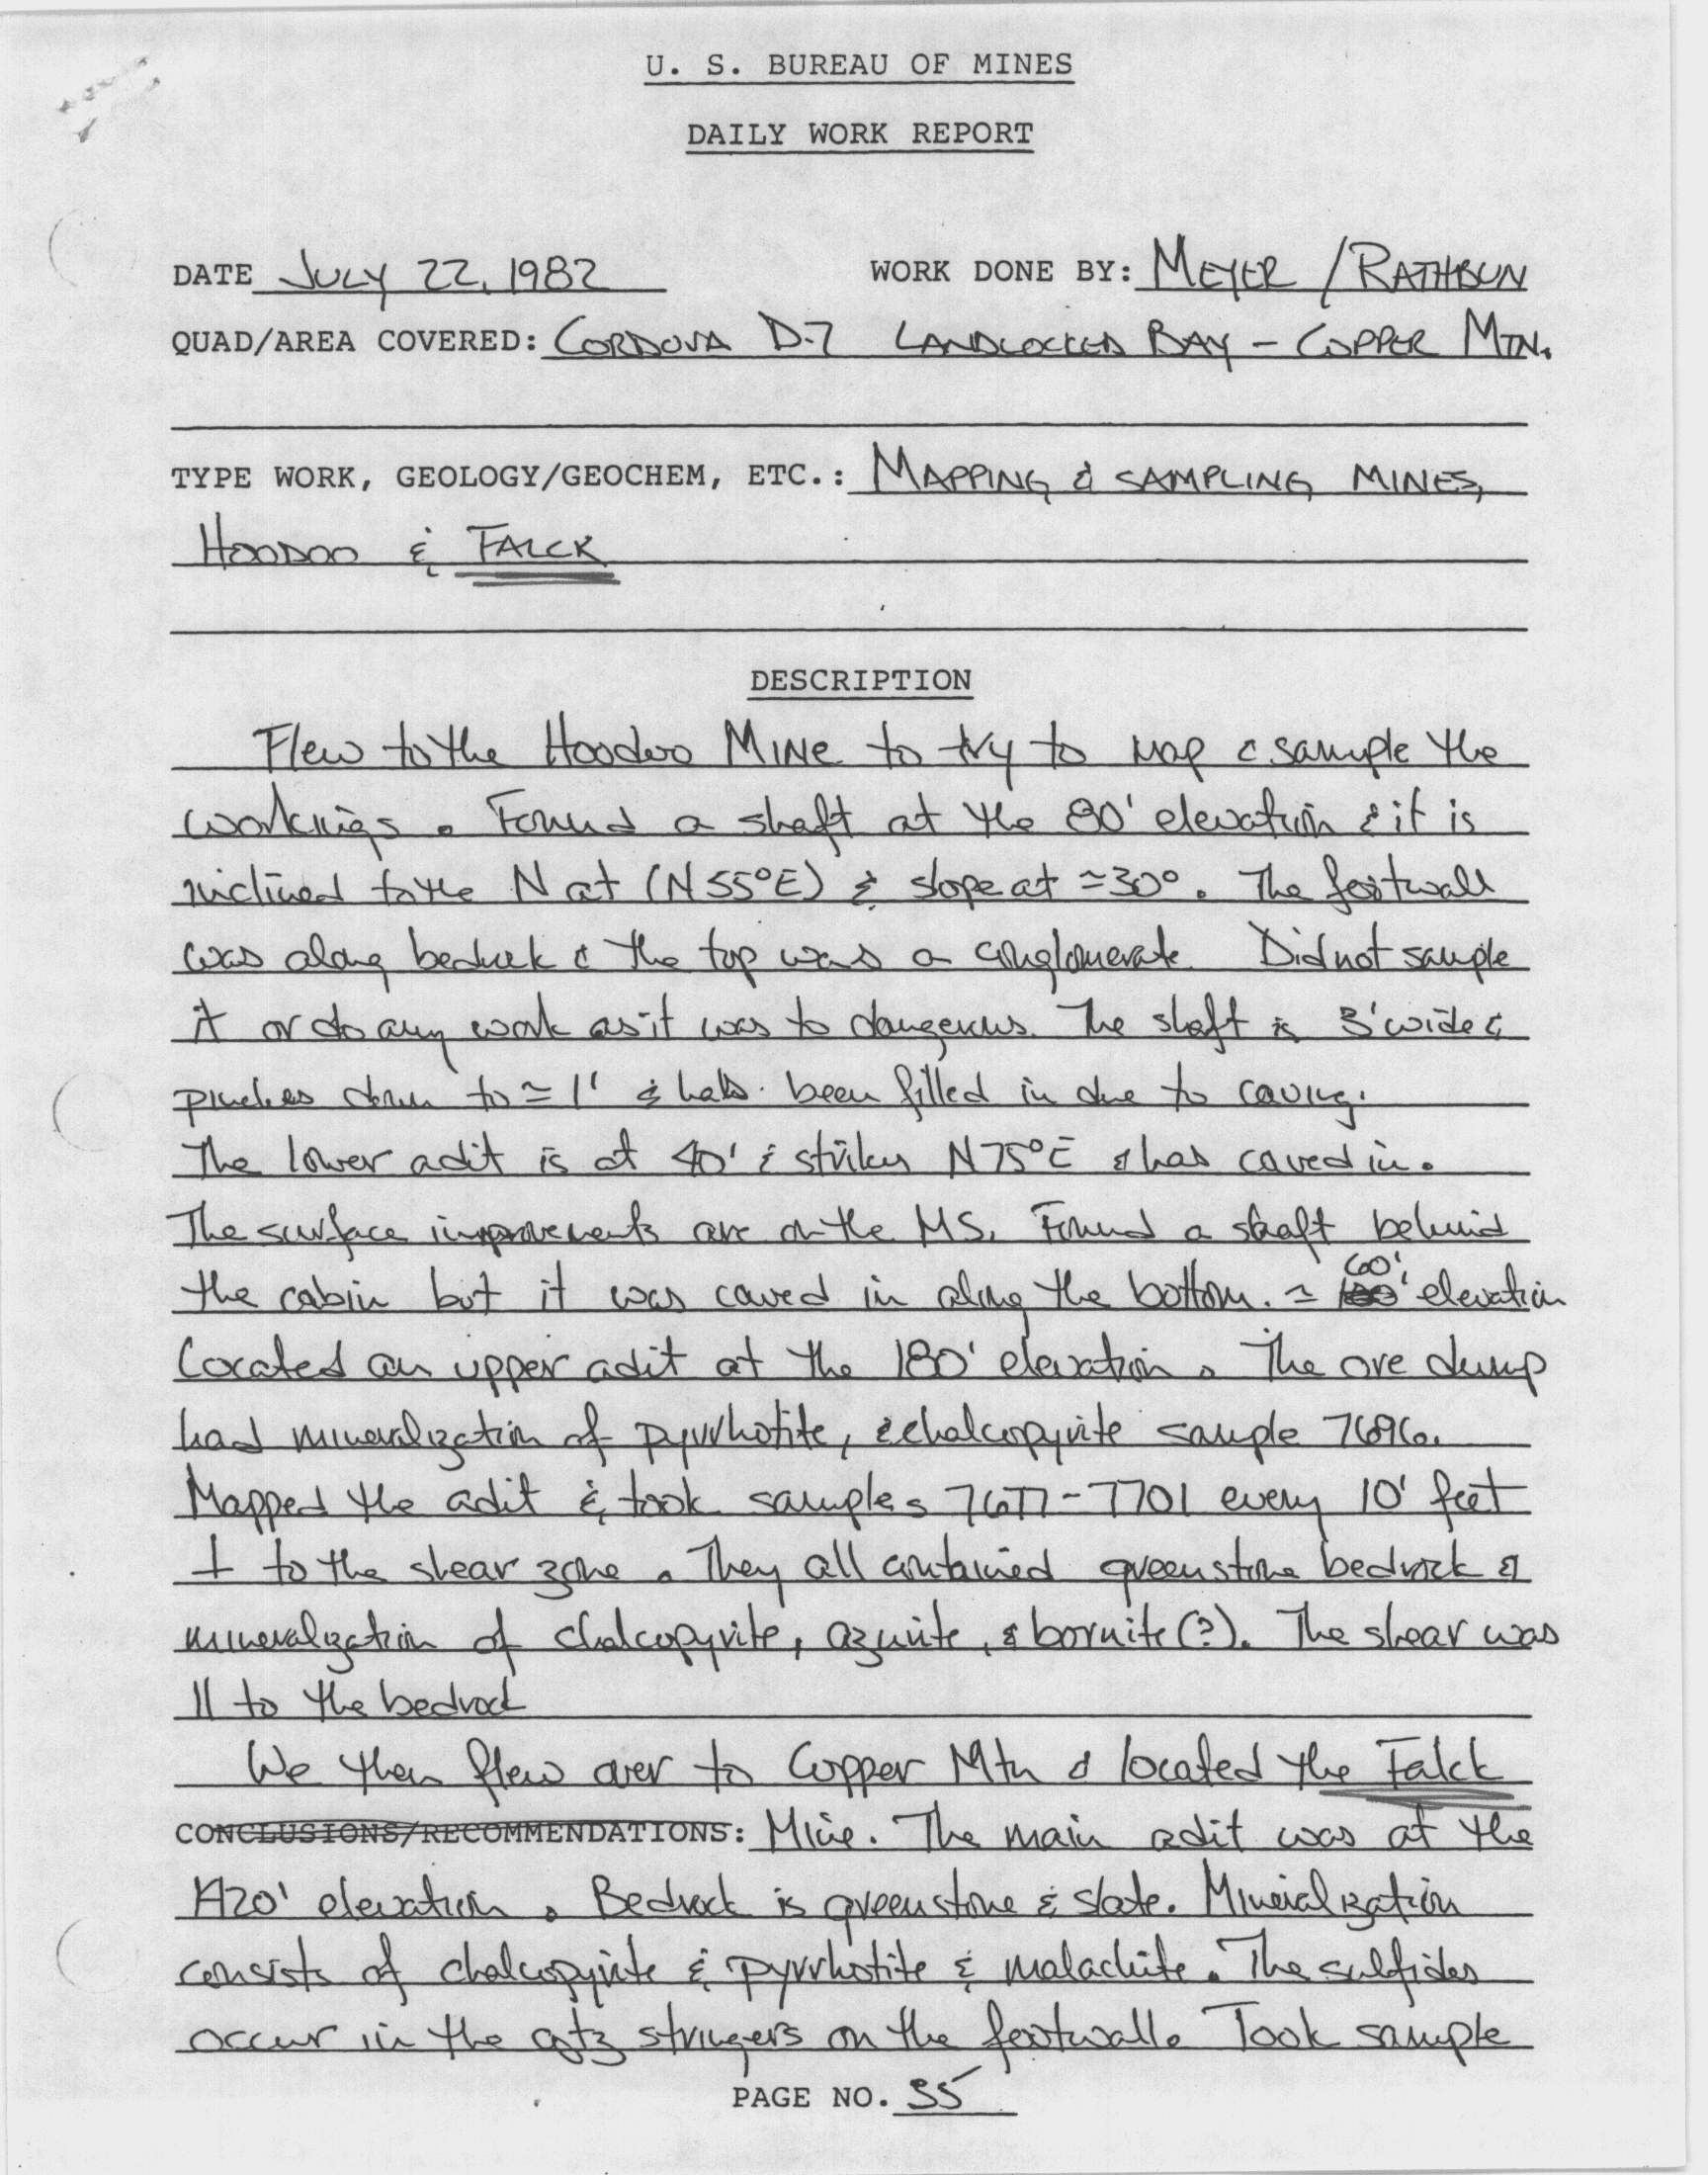 U. S. BUREAU OF MINES
DAILY WORK REPORT
DATE JULY 22, 1982 WORK DONE BY: MEYER / RATHBUN
QUAD/AREA COVERED: CORDOVA D-7 LANDLOCKED BAY - COPPER MTN.
TYPE WORK, GEOLOGY/GEOCHEM, ETC.: MAPPING & SAMPLING MINES,
HOODOO & FALCK
DESCRIPTION
Flew to the Hoodoo MINE to try to map & sample the
workings. Found a shaft at the 80' elevation & it is
inclined to the N at (N55°E) & slope at ≃30°. The footwall
was along bedrock & the top was a conglomerate. Did not sample
it or do any work as it was to dangerous. The shaft is 3' wide &
pinches down to ≃ 1' & has been filled in due to caving.
The lower adit is at 40' & strikes N75°E & has caved in.
The surface improvements are on the MS. Found a shaft behind
the cabin but it was caved in along the bottom. ≃ 60' elevation
Located an upper adit at the 180' elevation. The ore dump
had mineralization of pyrrhotite, & chalcopyrite sample 7696.
Mapped the adit & took samples 7677-7701 every 10' feet
⊥ to the shear zone. They all contained greenstone bedrock &
mineralization of chalcopyrite, azurite, & bornite(?). The shear was
|| to the bedrock
We then flew over to Copper Mtn & located the Falck
CONCLUSIONS/RECOMMENDATIONS: Mine. The main adit was at the
1420' elevation. Bedrock is greenstone & slate. Mineralization
consists of chalcopyrite & pyrrhotite & malachite. The sulfides
occur in the qtz stringers on the footwall. Took sample
PAGE NO. 35